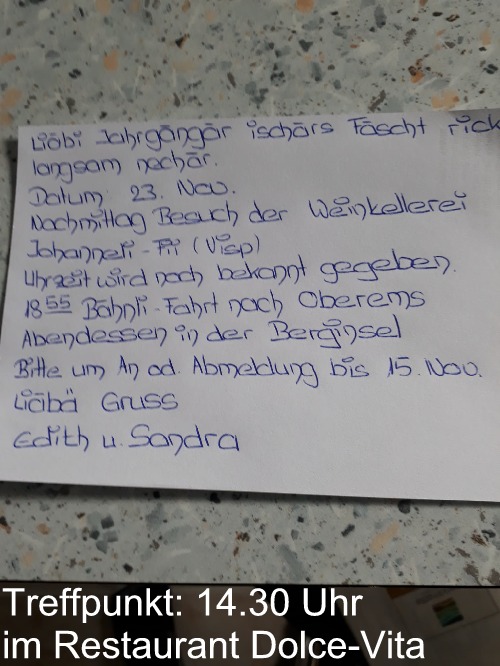 Liäbi Jahrgängär ischärs Fäscht rick
langsam nechär.
Datum 23. Nov.
Nachmittag Besuch der Weinkellerei
Johanneli-Fii (Visp)
Uhrzeit wird noch bekannt gegeben.
18 55 Bähnli-Fahrt nach Oberems
Abendessen in der Berginsel
Bitte um An od. Abmeldung bis 15. Nov.
Liäbä Gruss
Edith u. Sandra
Treffpunkt: 14.30 Uhr
im Restaurant Dolce-Vita